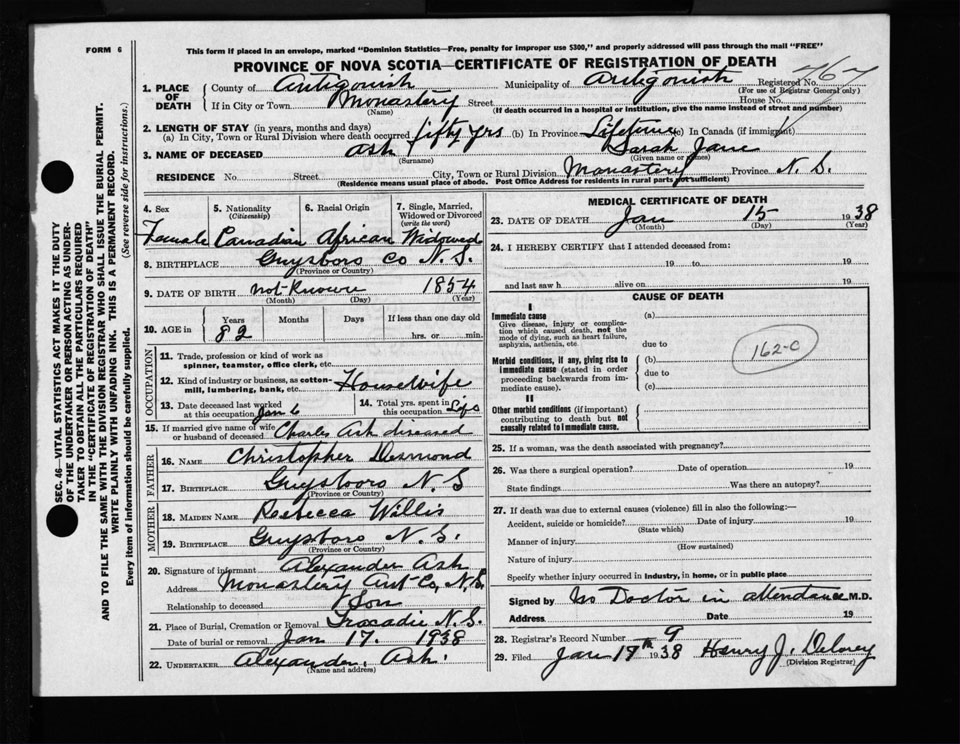 FORM 6
This form if placed in an envelope, marked "Dominion Statistics—Free, penalty for improper use $300," and properly addressed will pass through the mail "FREE"
PROVINCE OF NOVA SCOTIA—CERTIFICATE OF REGISTRATION OF DEATH
1. PLACE OF DEATH
County of Antigonish Municipality of Antigonish Registered No.
(For use of Registrar General only)
If in City or Town Monastery Street House No.
(Name) (If death occurred in a hospital or institution, give the name instead of street and number)
2. LENGTH OF STAY (in years, months and days)
(a) In City, Town or Rural Division where death occurred fifty yrs (b) In Province Lifetime (c) In Canada (if immigrant)
3. NAME OF DECEASED Ash Sarah Jane
(Surname) (Given name or names)
RESIDENCE No. Street City, Town or Rural Division Monastery Province N. S.
(Residence means usual place of abode. Post Office Address for residents in rural parts not sufficient)
SEC. 46—VITAL STATISTICS ACT MAKES IT THE DUTY
OF THE UNDERTAKER OR PERSON ACTING AS UNDER-
TAKER TO OBTAIN ALL THE PARTICULARS REQUIRED
IN THE "CERTIFICATE OF REGISTRATION OF DEATH"
AND TO FILE THE SAME WITH THE DIVISION REGISTRAR WHO SHALL ISSUE THE BURIAL PERMIT.
WRITE PLAINLY WITH UNFADING INK. THIS IS A PERMANENT RECORD.
Every item of information should be carefully supplied. (See reverse side for instructions.)
4. Sex 5. Nationality 6. Racial Origin 7. Single, Married,
(Citizenship) Widowed or Divorced
(write the word)
Female Canadian African Widowed
8. BIRTHPLACE Guysboro Co N. S.
(Province or Country)
9. DATE OF BIRTH not-Known 1854
(Month) (Day) (Year)
10. AGE in Years Months Days If less than one day old
82 hrs. or min.
OCCUPATION
11. Trade, profession or kind of work as
spinner, teamster, office clerk, etc.
12. Kind of industry or business, as cotton-
mill, lumbering, bank, etc. Housewife
13. Date deceased last worked
at this occupation Jan 6
14. Total yrs. spent in
this occupation Life
15. If married give name of wife
or husband of deceased Charles Ash diseased
FATHER
16. NAME Christopher Desmond
17. BIRTHPLACE Guysboro N. S
(Province or Country)
MOTHER
18. MAIDEN NAME Rebecca Willis
19. BIRTHPLACE Guysboro N. S.
(Province or Country)
20. Signature of informant Alexander Ash
Address Monastery Ant Co, N, S,
Relationship to deceased Son
21. Place of Burial, Cremation or Removal Tracadie N. S.
Date of burial or removal Jan 17. 1938
22. UNDERTAKER Alexander, Ash.
(Name and address)
MEDICAL CERTIFICATE OF DEATH
23. DATE OF DEATH Jan 15 1938
(Month) (Day) (Year)
24. I HEREBY CERTIFY that I attended deceased from:
19 to 19
and last saw h alive on 19
CAUSE OF DEATH
I
Immediate cause (a)
Give disease, injury or complica-
tion which caused death, not the
mode of dying, such as heart failure,
asphyxia, asthenia, etc. due to
Morbid conditions, if any, giving rise to (b)
immediate cause (stated in order due to
proceeding backwards from im-
mediate cause). (c)
162-C
II
Other morbid conditions (if important)
contributing to death but not
causally related to immediate cause.
25. If a woman, was the death associated with pregnancy?
26. Was there a surgical operation? Date of operation 19
State findings Was there an autopsy?
27. If death was due to external causes (violence) fill in also the following:—
Accident, suicide or homicide? Date of injury 19
(State which)
Manner of injury
(How sustained)
Nature of injury
Specify whether injury occurred in industry, in home, or in public place
Signed by No Doctor in attendance M.D.
Address Date 19
28. Registrar's Record Number 9
29. Filed Jan 19th 1938 Henry J. Delorey
(Division Registrar)